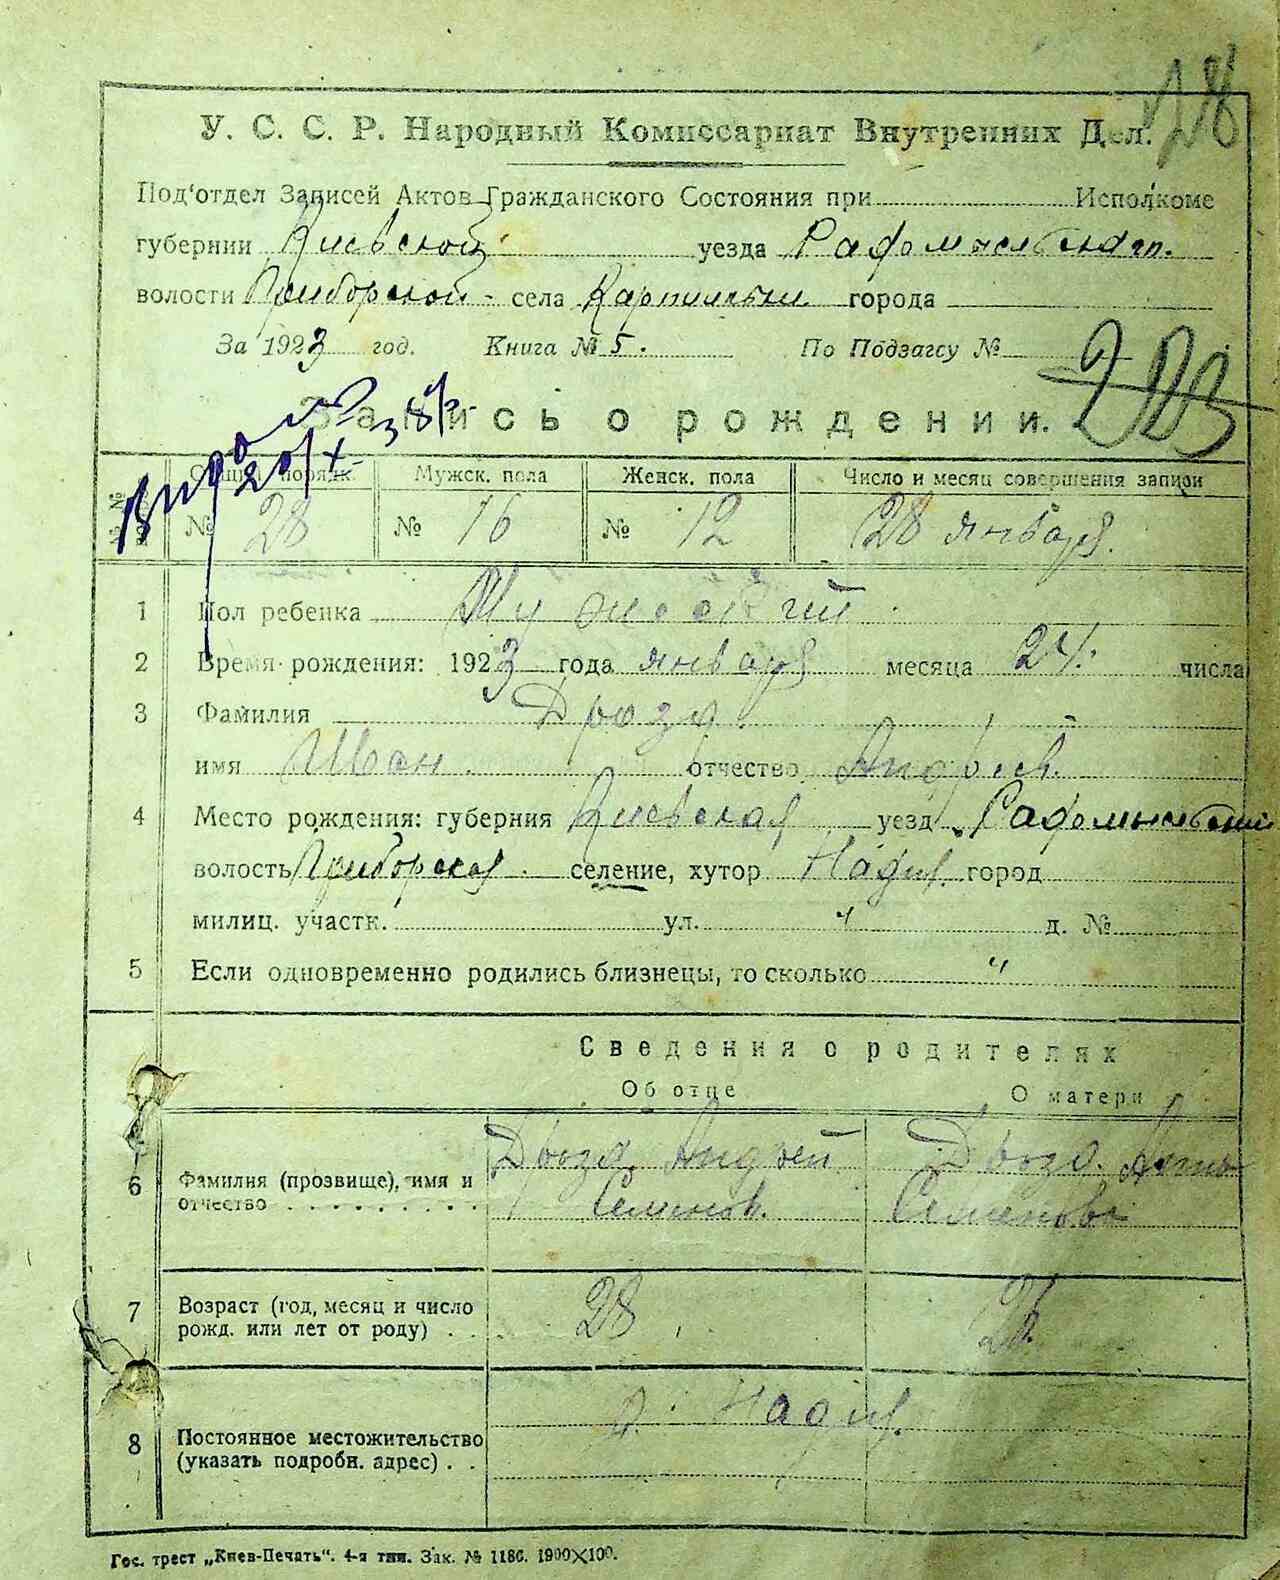 28
У. С. С. Р. Народный Комиссариат Внутренних Дел.
Под'отдел Записей Актов Гражданского Состояния при Исполкоме
губернии Киевской уезда Радомысльского.
волости Приборской села города
За 1923 год. Книга № 5. По Подзагсу №
203
Запись о рождении.
20/X 38
Общий порядк. Мужск. пола Женск. пола Число и месяц совершения записи
№ 28 № 16 № 12 28 января.
1 Пол ребенка Мужеский
2 Время рождения: 1923 года января месяца 24. числа
3 Фамилия Дрозд.
имя Иван. отчество Андреев.
4 Место рождения: губерния Киевская уезд Радомысльский
волость Приборская селение, хутор город
милиц. участк. ул. " д. №
5 Если одновременно родились близнецы, то сколько "
Сведения о родителях
Об отце О матери
6 Фамилия (прозвище), имя и Дрозд Андрей Дрозд.
отчество . . . . . . . . . . Семенов. Семенова
7 Возраст (год, месяц и число 28 26
рожд. или лет от роду) . .
8 Постоянное местожительство
(указать подробн. адрес) . .
Гос. трест „Киев-Печать". 4-я тип. Зак. № 1186. 1900X100.